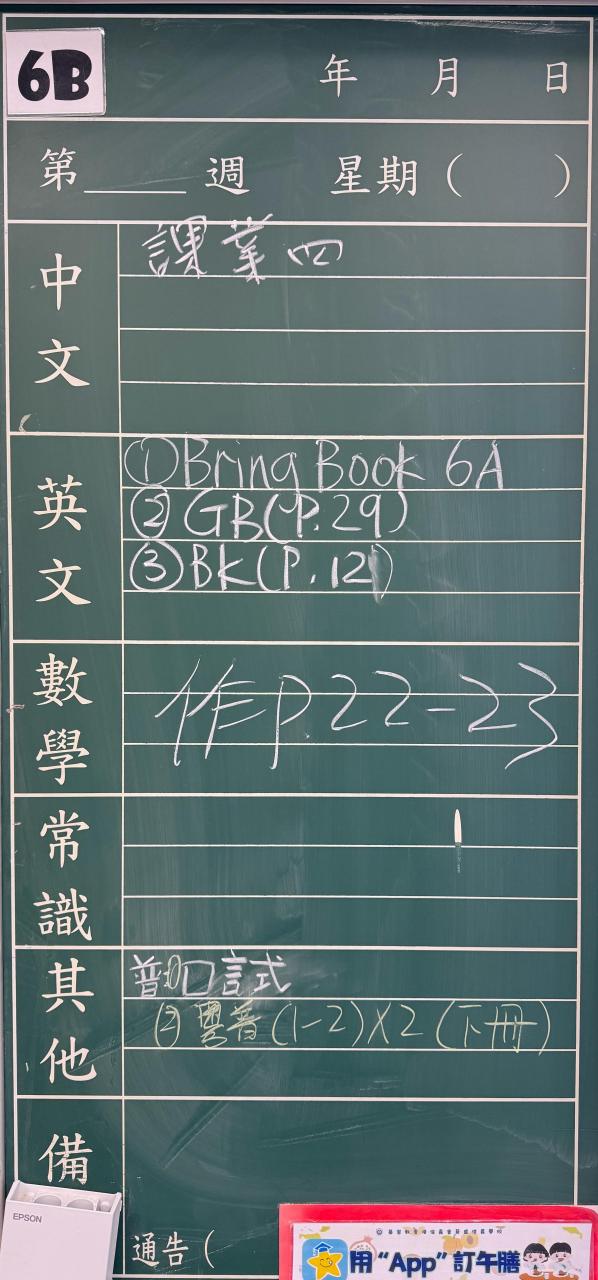 6B
年 月 日
第____週 星期( )
中文
課業四
英文
①Bring Book 6A
②GB(P.29)
③BK(P.12)
數學
作P.22-23
常識
其他
普口試
② 普(1-2)X2(下冊)
備
通告(
EPSON
用“App”訂午膳